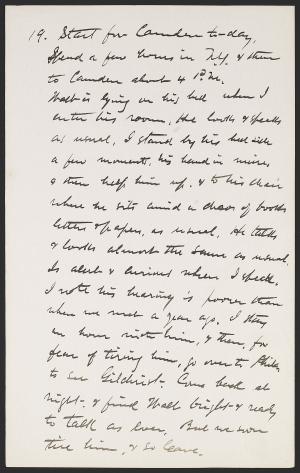 19. Start for Camden to-day.
Spend a few hours in N.Y. & then
to Camden about 4 P.M.
Walt is lying on his bed when I
enter his room. He looks & speaks
as usual. I stand by his bed side
a few moments, his hand in mine,
& then help him up, & to his chair
where he sits amid a chaos of books
letters & papers, as usual. He talks
& looks almost the same as usual.
Is alert & curious when I speak.
I note his hearing is poorer than
when we met a year ago. I stay
an hour with him, & then, for
fear of tiring him, go over to Phila
to see Gilchrist. Come back at
night & find Walt bright & ready
to talk as ever. But we soon
tire him, & so leave.